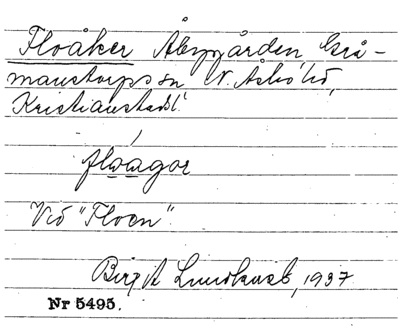 Floåker Åbygården Grå-
manstorps sn N. Åsbo hd,
Kristianstads l.
floagor
Vid "Floen".
Birgit Lundkvist, 1937
Nr 5495.